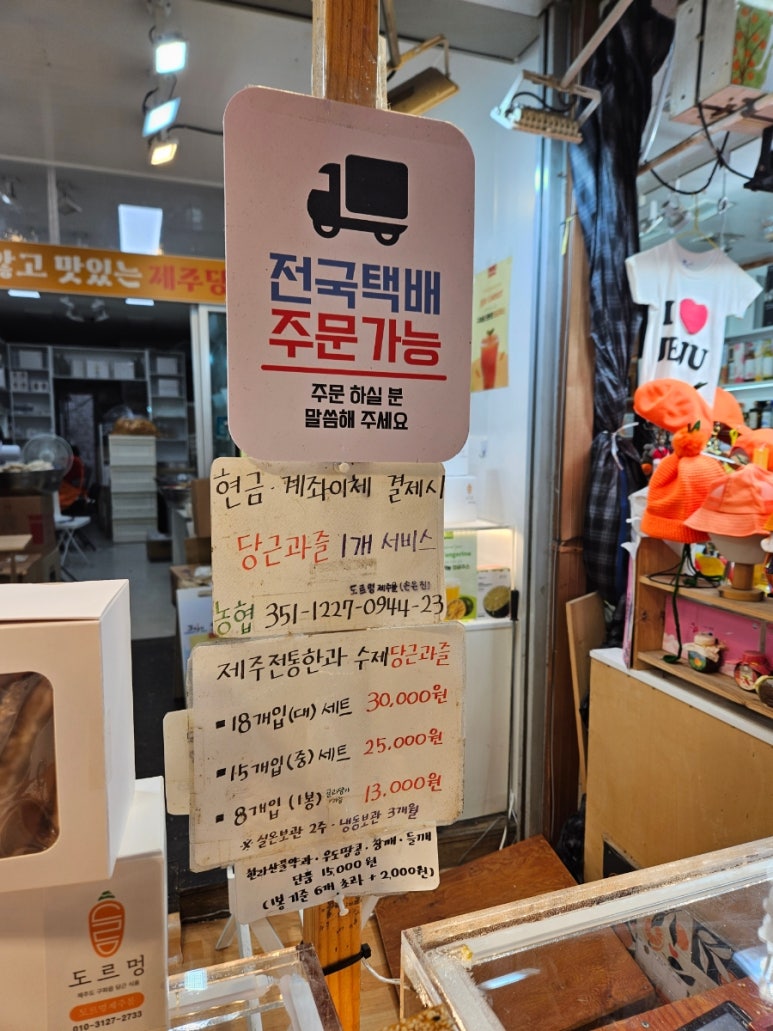 않고 맛있는 제주당
전국택배
주문가능
주문 하실 분
말씀해 주세요
현금·계좌이체 결제시
당근과즐 1개 서비스
농협 351-1227-0944-23
제주전통한과 수제당근과즐
▪18개입(대) 세트 30,000원
▪15개입(중) 세트 25,000원
▪8개입 (1봉) 13,000원
※ 실온보관 2주·냉동보관 3개월
한라산꿀약과·우도땅콩·참깨·들깨
단품 15,000원
(1봉 기준 6개, 초과 +2,000원)
I ♥
JEJU
도르멍
제주도 구좌읍 당근 식품
도르멍제주본
010-3127-2733